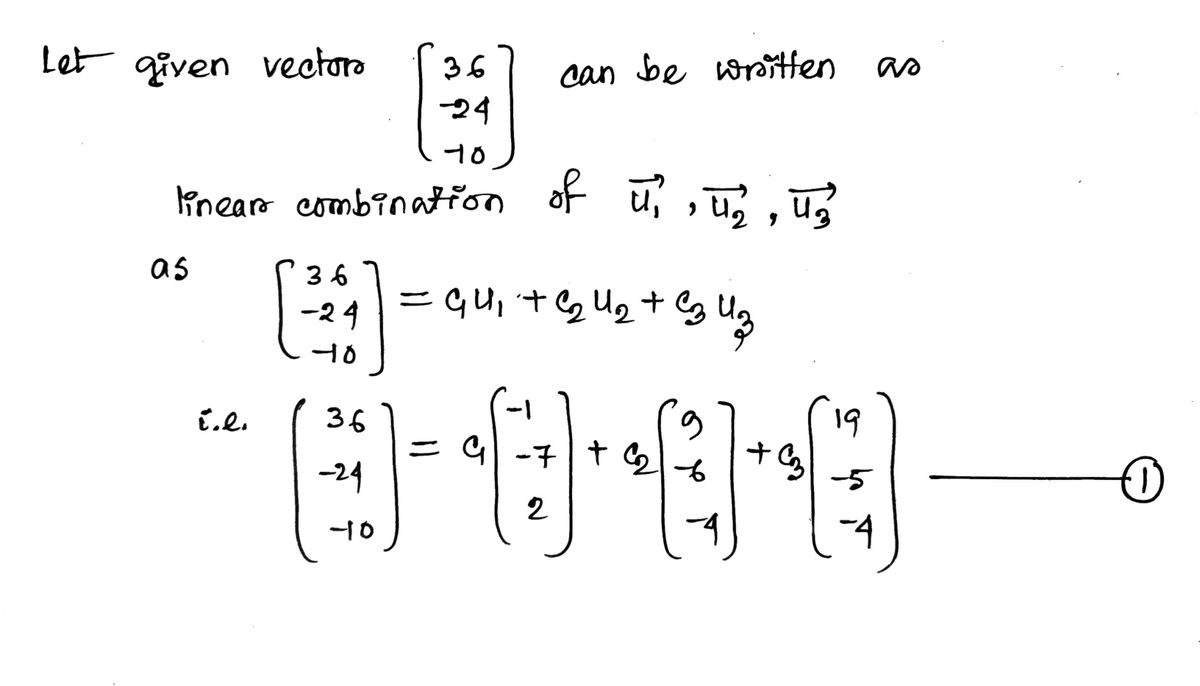 Let given vector [36 -24 -10] can be written as
linear combination of u⃗₁ , u⃗₂ , u⃗₃
as [36 -24 -10] = c₁u₁ + c₂u₂ + c₃u₃
i.e. [36 -24 -10] = c₁[-1 -7 2] + c₂[9 -6 -4] + c₃[19 -5 -4] ——— ①